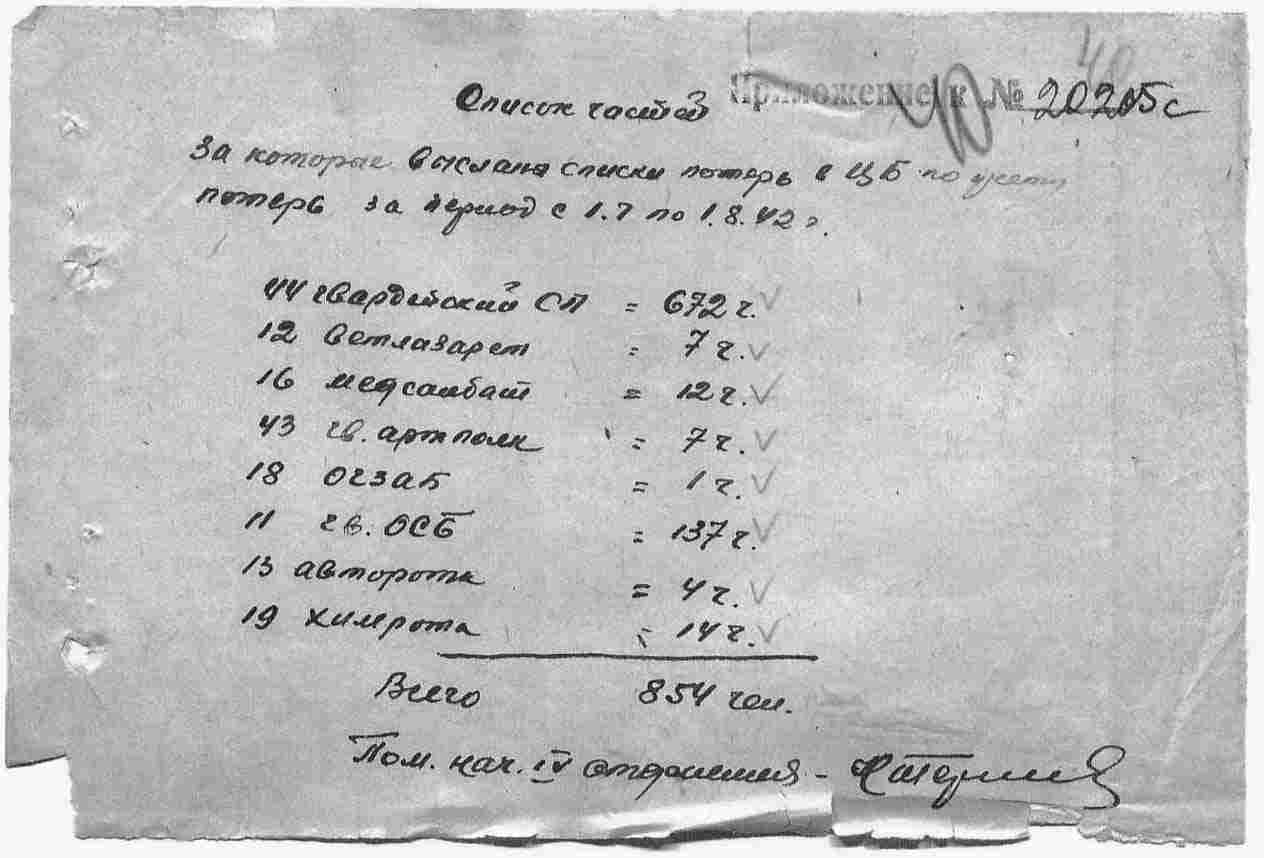 40
Приложение к № 20205с
40
Список частей
за которые выслана списки потерь в ЦБ по учету
потерь за период с 1.7 по 1.8.42 г.
44 гвардейский СП = 672 ч.
12 ветлазарет = 7 ч.
16 медсанбат = 12 ч.
43 гв. артполк = 7 ч.
18 огзаб = 1 ч.
11 гв. ОСБ = 137 ч.
13 авторота = 4 ч.
19 химрота = 14 ч.
Всего 854 чел.
Пом. нач. IV отделения -